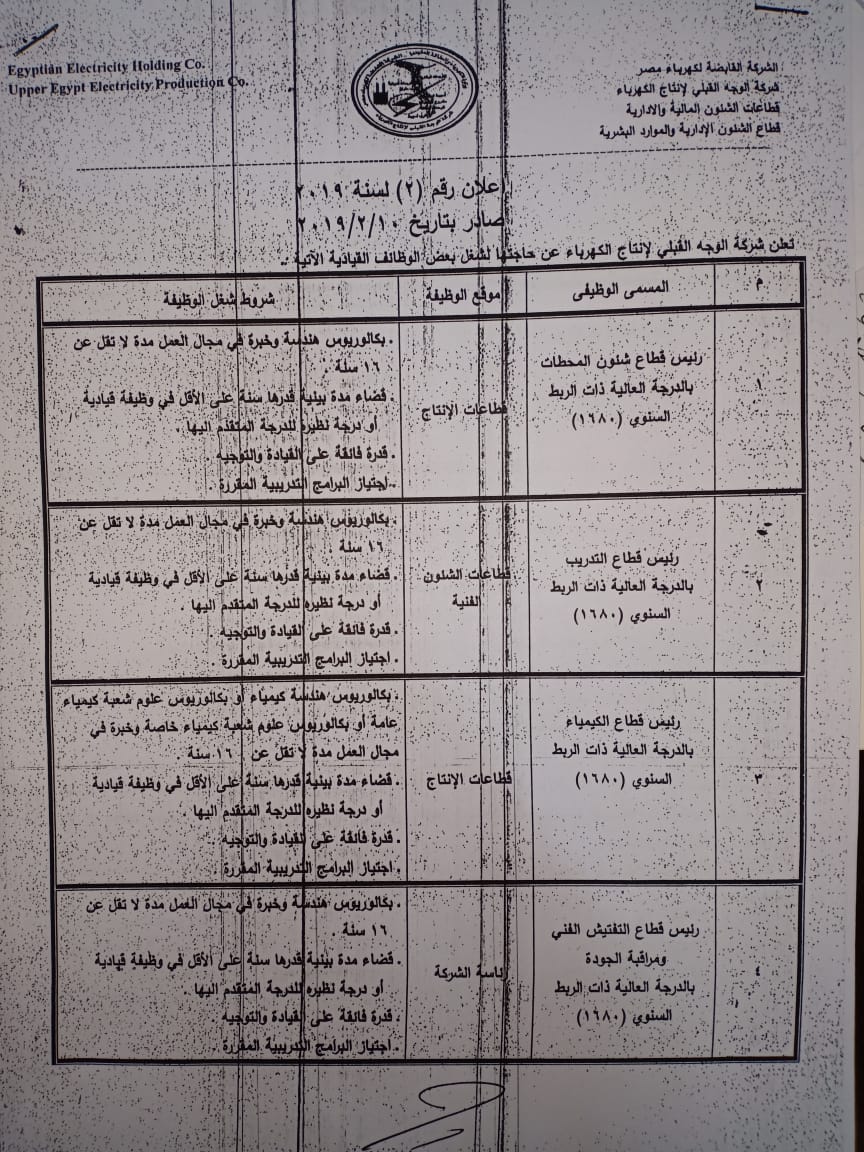 Egyptian Electricity Holding Co.
Upper Egypt Electricity Production Co.
الشركة القابضة لكهرباء مصر
شركة الوجه القبلي لإنتاج الكهرباء
قطاعات الشئون المالية والادارية
قطاع الشئون الإدارية والموارد البشرية
إعلان رقم (٢) لسنة ٢٠١٩
صادر بتاريخ ٢٠١٩/٢/١٠
تعلن شركة الوجه القبلي لإنتاج الكهرباء عن حاجتها لشغل بعض الوظائف القيادية الآتية :-
م
المسمى الوظيفى
موقع الوظيفة
شروط شغل الوظيفة
١
رئيس قطاع شئون المحطات
بالدرجة العالية ذات الربط
السنوي (١٦٨٠)
قطاعات الإنتاج
. بكالوريوس هندسة وخبرة في مجال العمل مدة لا تقل عن
١٦ سنة .
. قضاء مدة بينية قدرها سنة على الأقل في وظيفة قيادية
أو درجة نظيره للدرجة المتقدم اليها .
. قدرة فائقة على القيادة والتوجيه .
. اجتياز البرامج التدريبية المقررة .
٢
رئيس قطاع التدريب
بالدرجة العالية ذات الربط
السنوي (١٦٨٠)
قطاعات الشئون
الفنية
. بكالوريوس هندسة وخبرة في مجال العمل مدة لا تقل عن
١٦ سنة .
. قضاء مدة بينية قدرها سنة على الأقل في وظيفة قيادية
أو درجة نظيره للدرجة المتقدم اليها .
. قدرة فائقة على القيادة والتوجيه .
. اجتياز البرامج التدريبية المقررة .
٣
رئيس قطاع الكيمياء
بالدرجة العالية ذات الربط
السنوي (١٦٨٠)
قطاعات الإنتاج
. بكالوريوس هندسة كيمياء أو بكالوريوس علوم شعبة كيمياء
عامة أو بكالوريوس علوم شعبة كيمياء خاصة وخبرة في
مجال العمل مدة لا تقل عن ١٦ سنة .
. قضاء مدة بينية قدرها سنة على الأقل في وظيفة قيادية
أو درجة نظيره للدرجة المتقدم اليها .
. قدرة فائقة على القيادة والتوجيه .
. اجتياز البرامج التدريبية المقررة .
٤
رئيس قطاع التفتيش الفني
ومراقبة الجودة
بالدرجة العالية ذات الربط
السنوي (١٦٨٠)
رئاسة الشركة
. بكالوريوس هندسة وخبرة في مجال العمل مدة لا تقل عن
١٦ سنة .
. قضاء مدة بينية قدرها سنة على الأقل في وظيفة قيادية
أو درجة نظيره للدرجة المتقدم اليها .
. قدرة فائقة على القيادة والتوجيه
. اجتياز البرامج التدريبية المقررة .